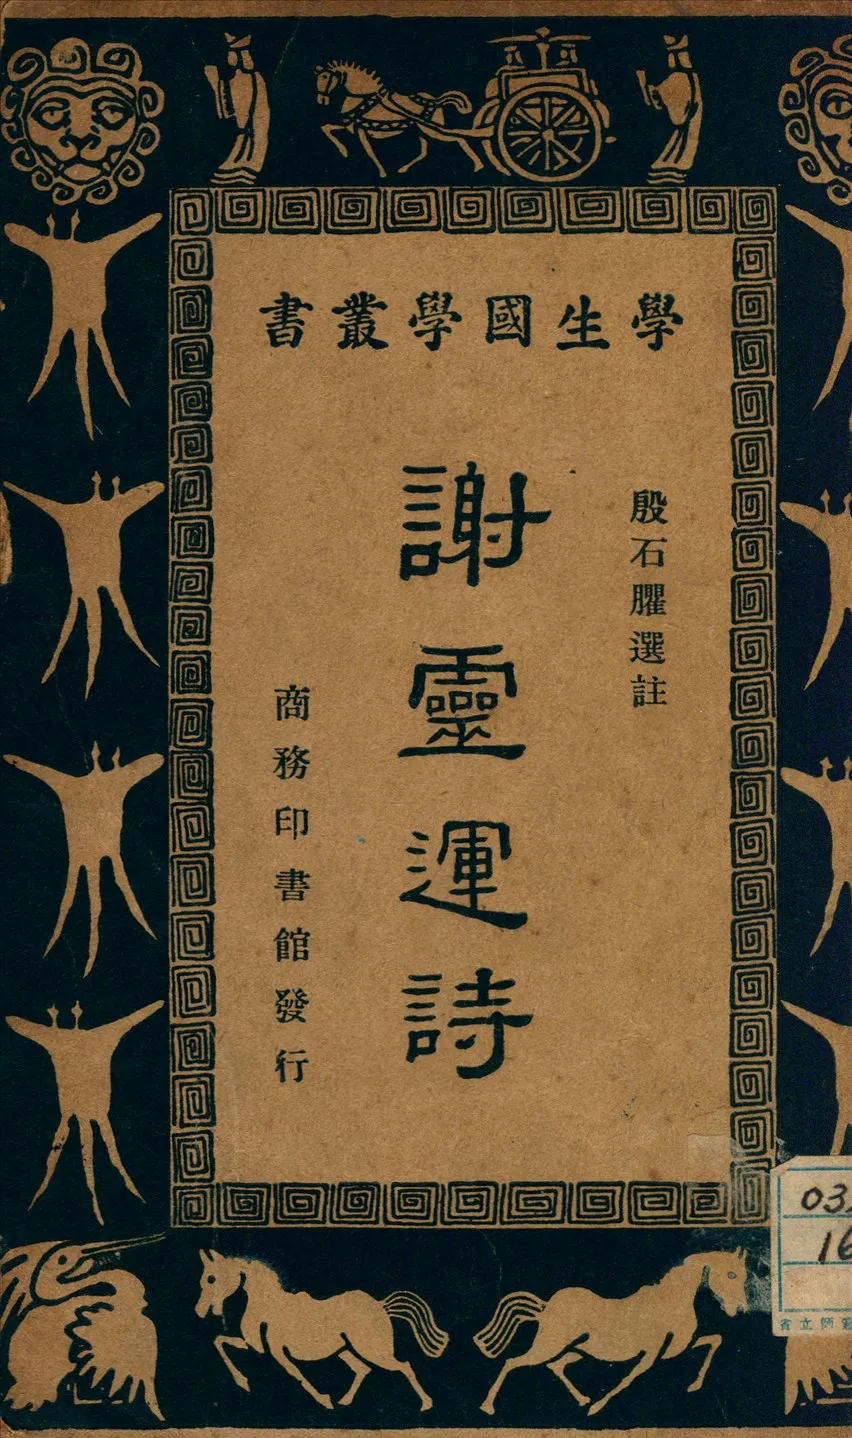 學生國學叢書
殷石臞選註
謝靈運詩
商務印書館發行
03
16
省立師範